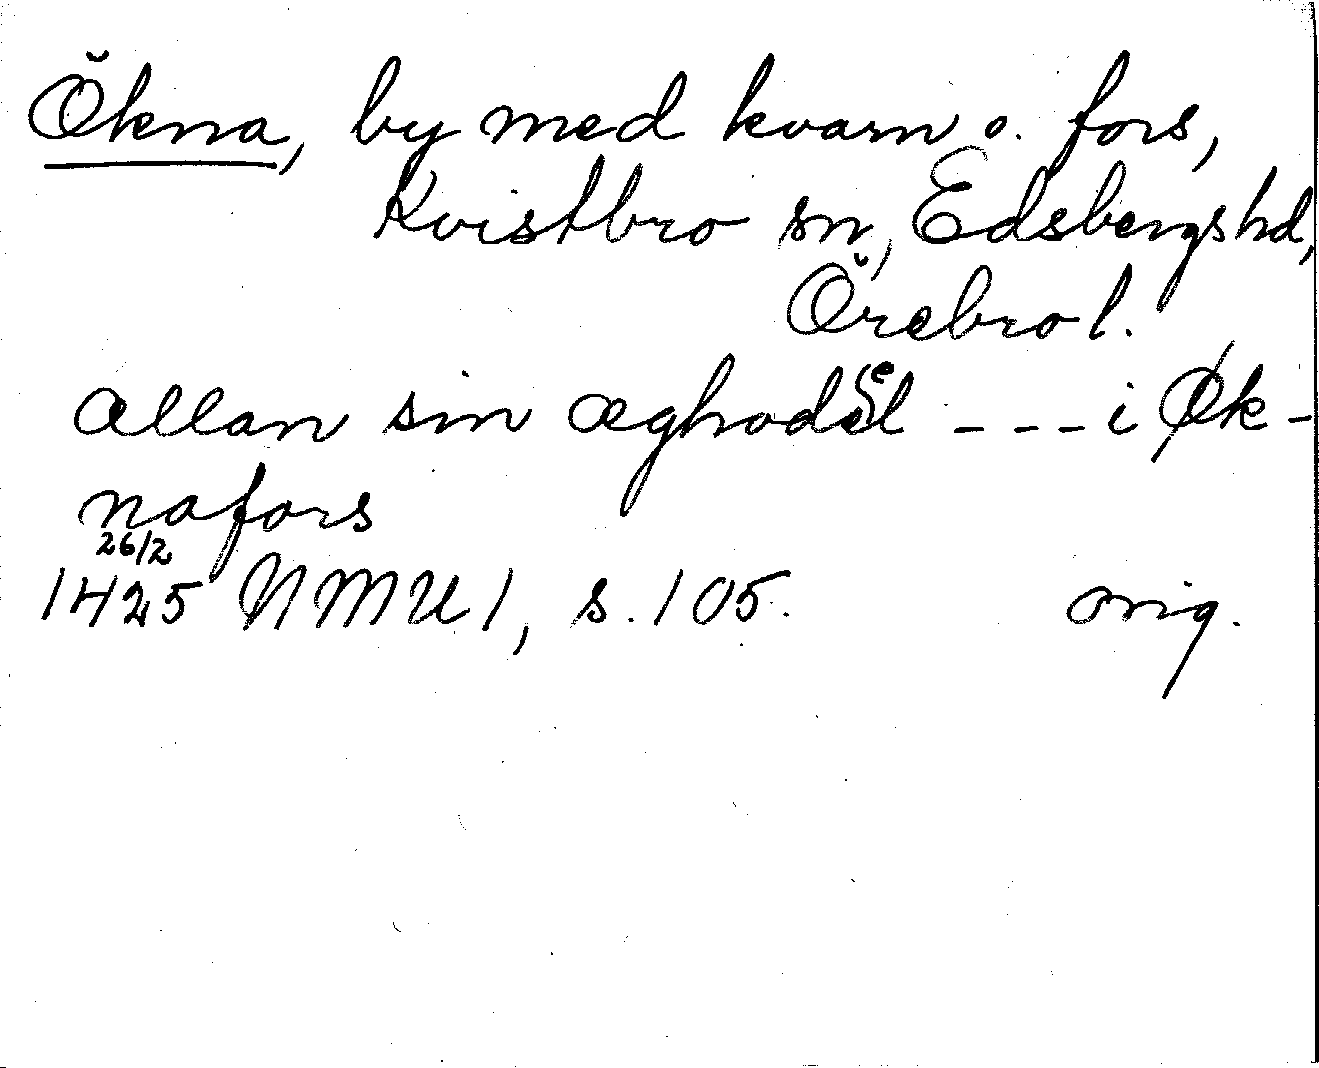 Ökna, by med kvarn o. fors,
Kvistbro sn, Edsbergs hd,
Örebro l.
allan sin æghodel - - - i Øk-
nafors
26/2
1425 NMU 1, s. 105. orig.